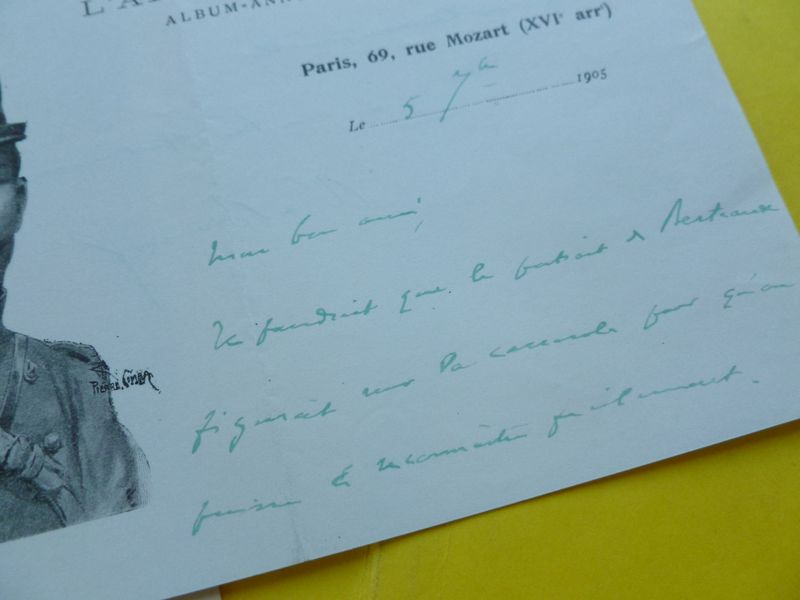 L'A
ALBUM-ANN
Paris, 69, rue Mozart (XVIe arrt)
Le 5 7bre 1905
Mon bon ami,
Il faudrait que le portrait de Berteaux
figurât sur la casserole pour qu'on
puisse le reconnaître facilement.
PIERRE COMBA